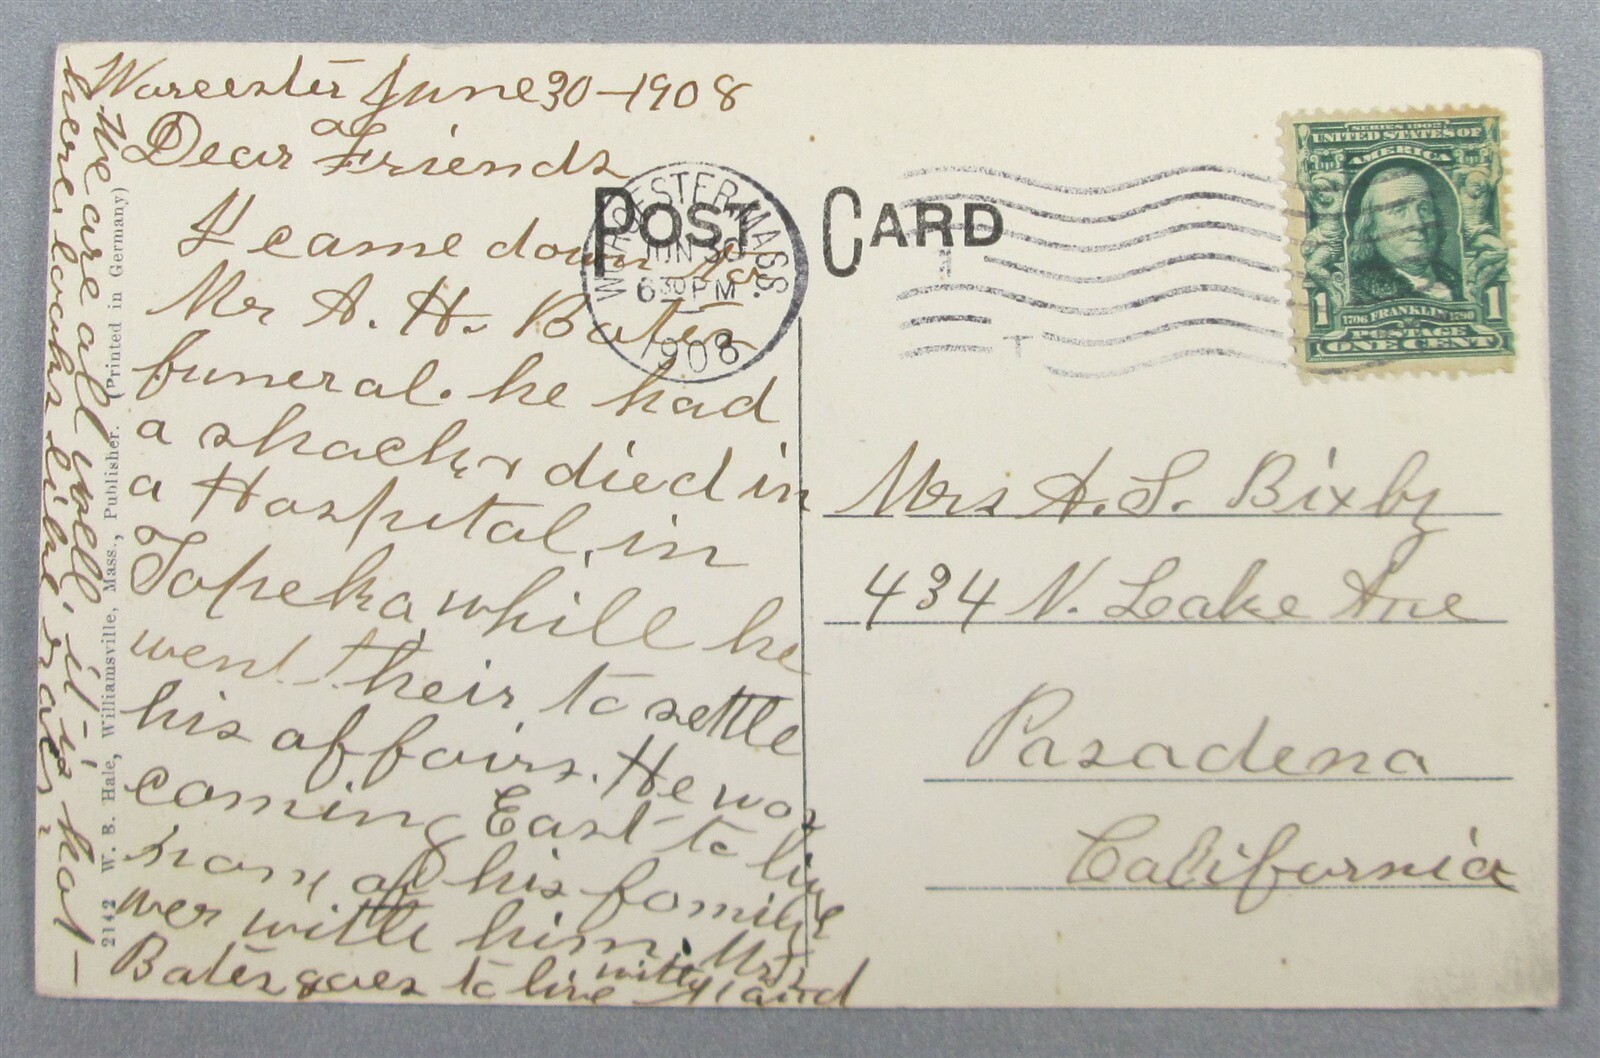 Worcester June 30-1908
Dear Friends
I came down to
Mr A. H. Bates
funeral. he had
a shack & died in
a Hospital, in
Topeka, while he
went their to settle
his affairs. He was
coming East to live
none of his family
wer with him. Mrs
Bates goes to live with
We are all well, it is hot
here, looks like rain
POST CARD
WORCESTER, MASS.
JUN 30
6 30 PM
1908
1
SERIES 1902
UNITED STATES OF
AMERICA
1 1706 FRANKLIN 1790 1
POSTAGE
ONE CENT
Mrs A. S. Bixby
434 N. Lake Ave
Pasadena
California
2142 W. B. Hale, Williamsville, Mass., Publisher. (Printed in Germany)